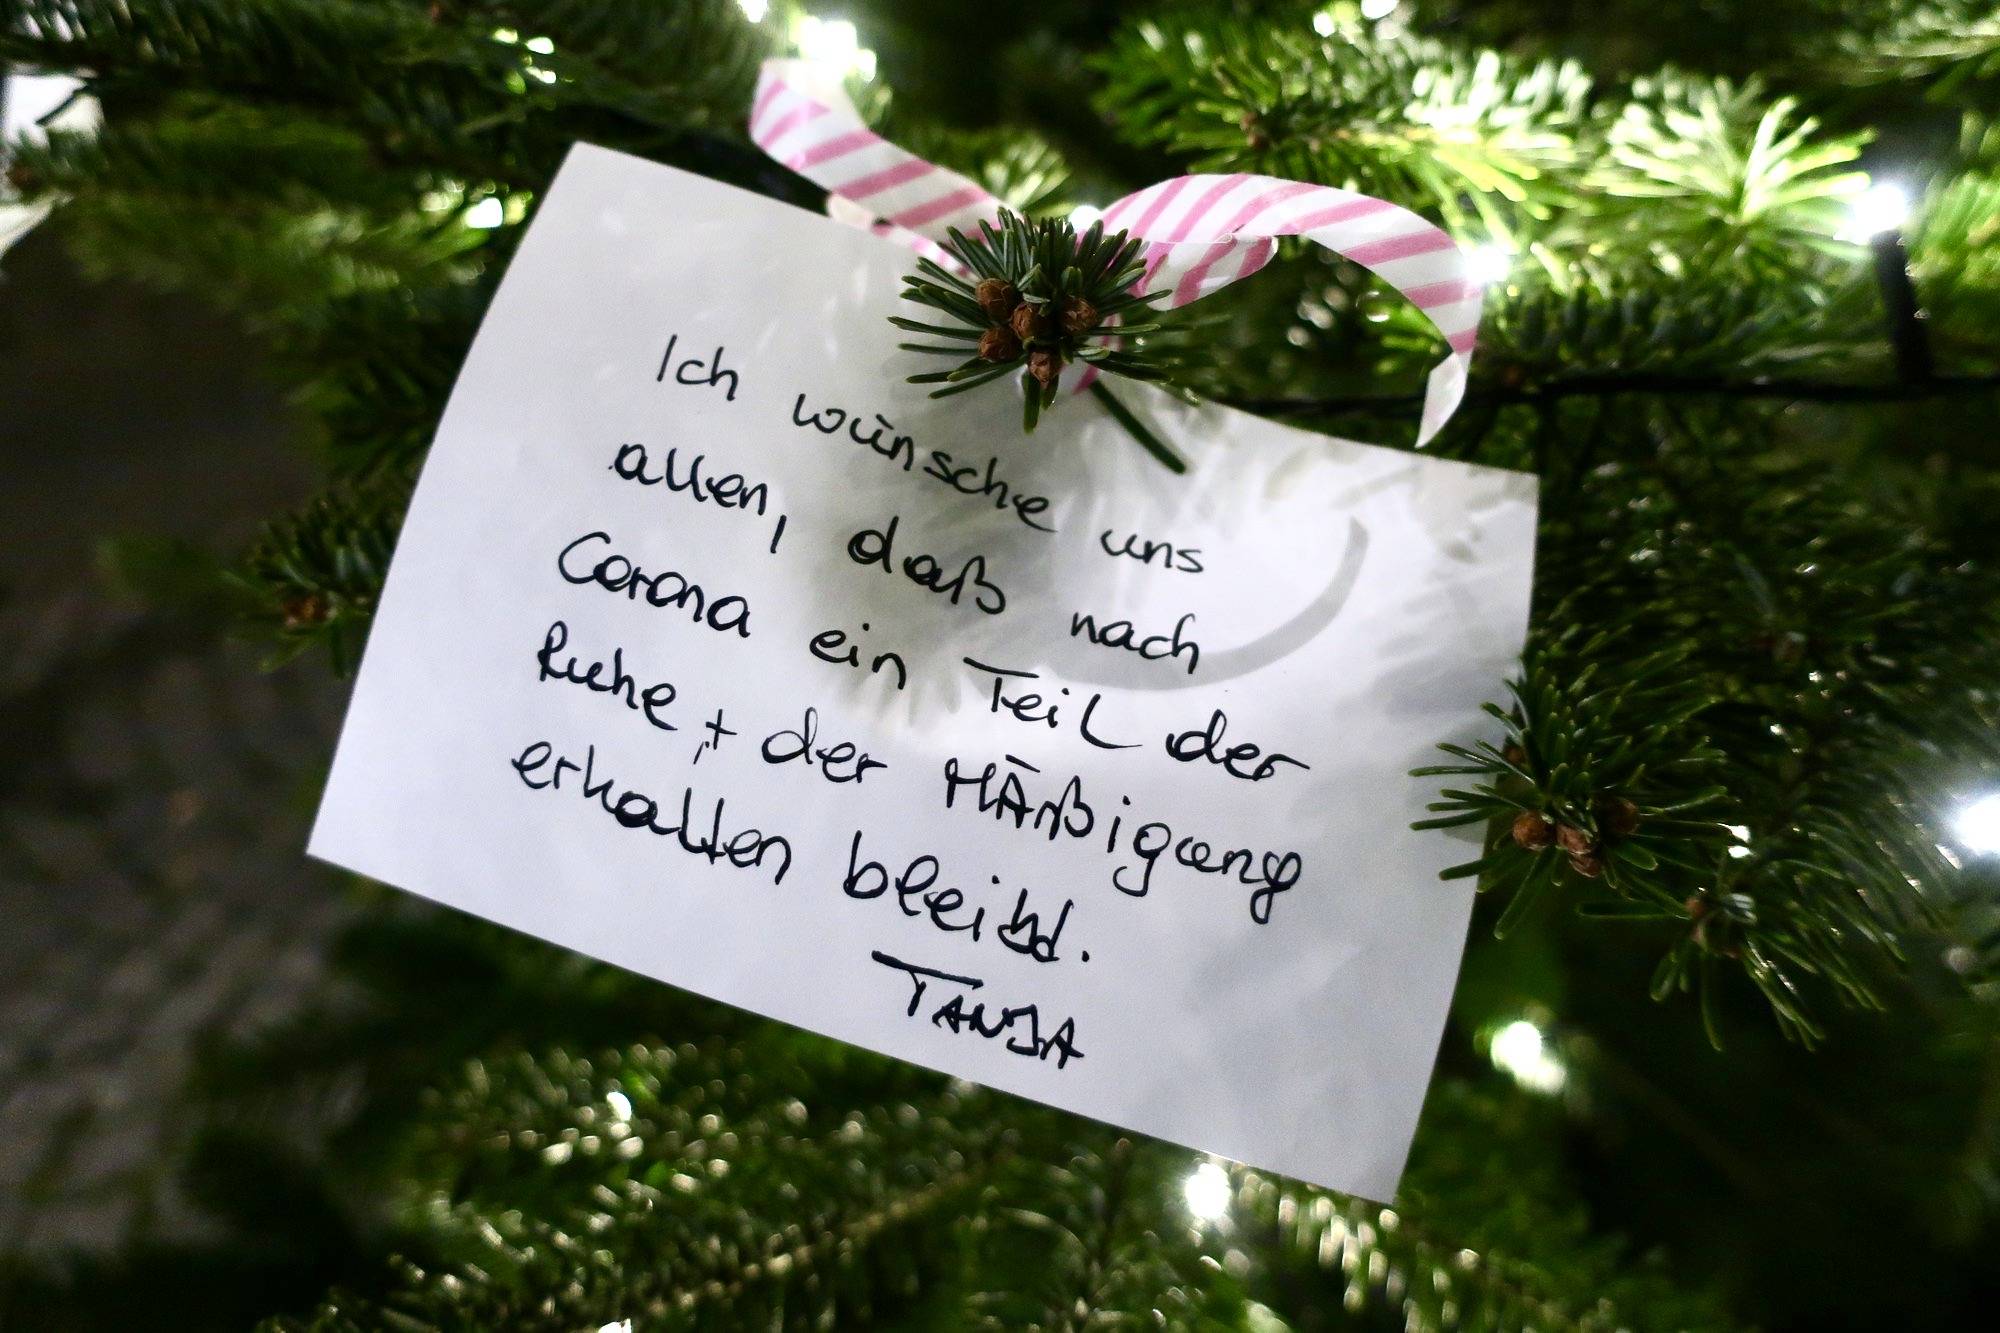 Ich wünsche uns
allen, daß nach
Corona ein Teil der
Ruhe + der MÄßigung
erhalten bleibt.
TANJA